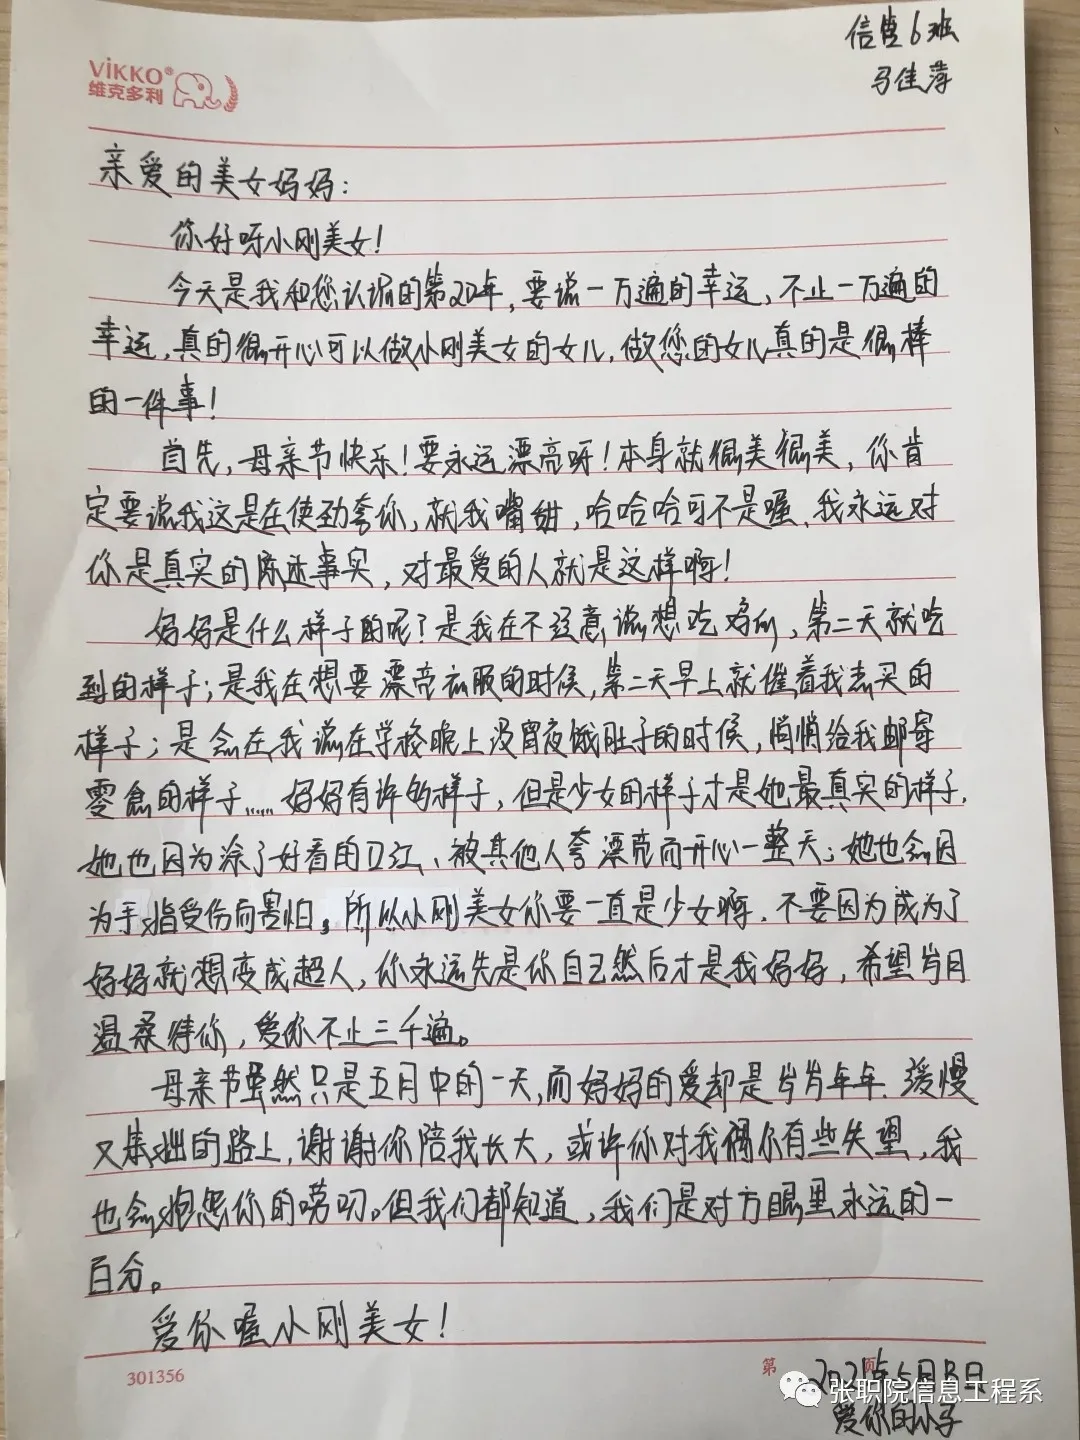 信管6班
马佳萍
ViKKO®
维克多利
亲爱的美女妈妈：
你好呀小刚美女！
今天是我和您认识的第20年，要说一万遍的幸运，不止一万遍的
幸运，真的很开心可以做小刚美女的女儿，做您的女儿真的是很棒
的一件事！
首先，母亲节快乐！要永远漂亮呀！本身就很美很美，你肯
定要说我这是在使劲夸你，就我嘴甜，哈哈哈可不是喔、我永远对
你是真实的陈述事实，对最爱的人就是这样啊！
妈妈是什么样子的呢？是我在不注意说想吃，第二天就吃
到的样子；是我在想要漂亮衣服的时候，第二天早上就催着我去买的
样子；是会在我说在学校晚上没宵夜饿肚子的时候，悄悄给我邮寄
零食的样子……妈妈有许多样子，但是少女的样子才是她最真实的样子，
她也因为涂了好看的口红、被其他人夸漂亮而开心一整天；她也会因
为手指受伤而害怕。所以小刚美女你要一直是少女啊．不要因为成为了
妈妈就想变成超人，你永远先是你自己然后才是我妈妈，希望岁月
温柔待你，爱你不止三千遍。
母亲节虽然只是五月中的一天，而妈妈的爱却是岁岁年年．漫慢
又的路上，谢谢你陪我长大，或许你对我偶尔有些失望，我
也会抱怨你的唠叨。但我们都知道，我们是对方眼里永远的一
百分。
爱你喔小刚美女！
301356
第 页
2021年5月8日
爱你的小子
张职院信息工程系